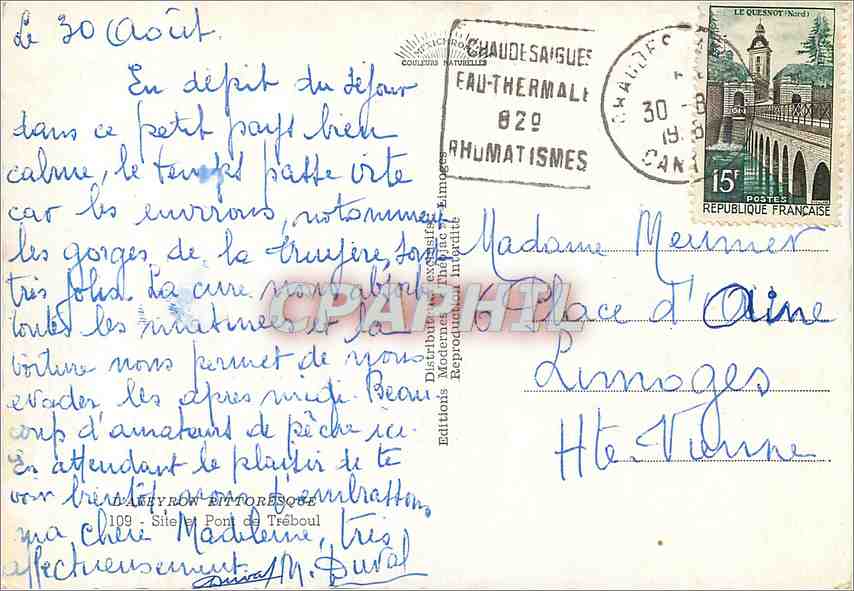 Le 30 Août.
En dépit du séjour
dans ce petit pays bien
calme, le temps passe vite
car les environs, notamment
les gorges de la Truyère, sont
très jolis. La cure nous absorbe
toutes les matinées et la
voiture nous permet de nous
évader les après midi. Beau
coup d'amateurs de pêche ici.
En attendant le plaisir de te
voir bientôt, nous t'embrassons,
ma chère Madeleine, très
affectueusement.
Duval M. Duval
L'AVEYRON PITTORESQUE
109 - Site et Pont de Tréboul
MEXICHROME
COULEURS NATURELLES
Distributeurs exclusifs
Editions Modernes Théojac - Limoges
Reproduction Interdite
CHAUDESAIGUES
EAU-THERMALE
82º
RHUMATISMES
CHAUDES
30 -8
19
CANT
LE QUESNOY (Nord)
15F
POSTES
REPUBLIQUE FRANÇAISE
Madame Meunier
6 Place d'Aine
Limoges
Hte-Vienne
CPARHIL